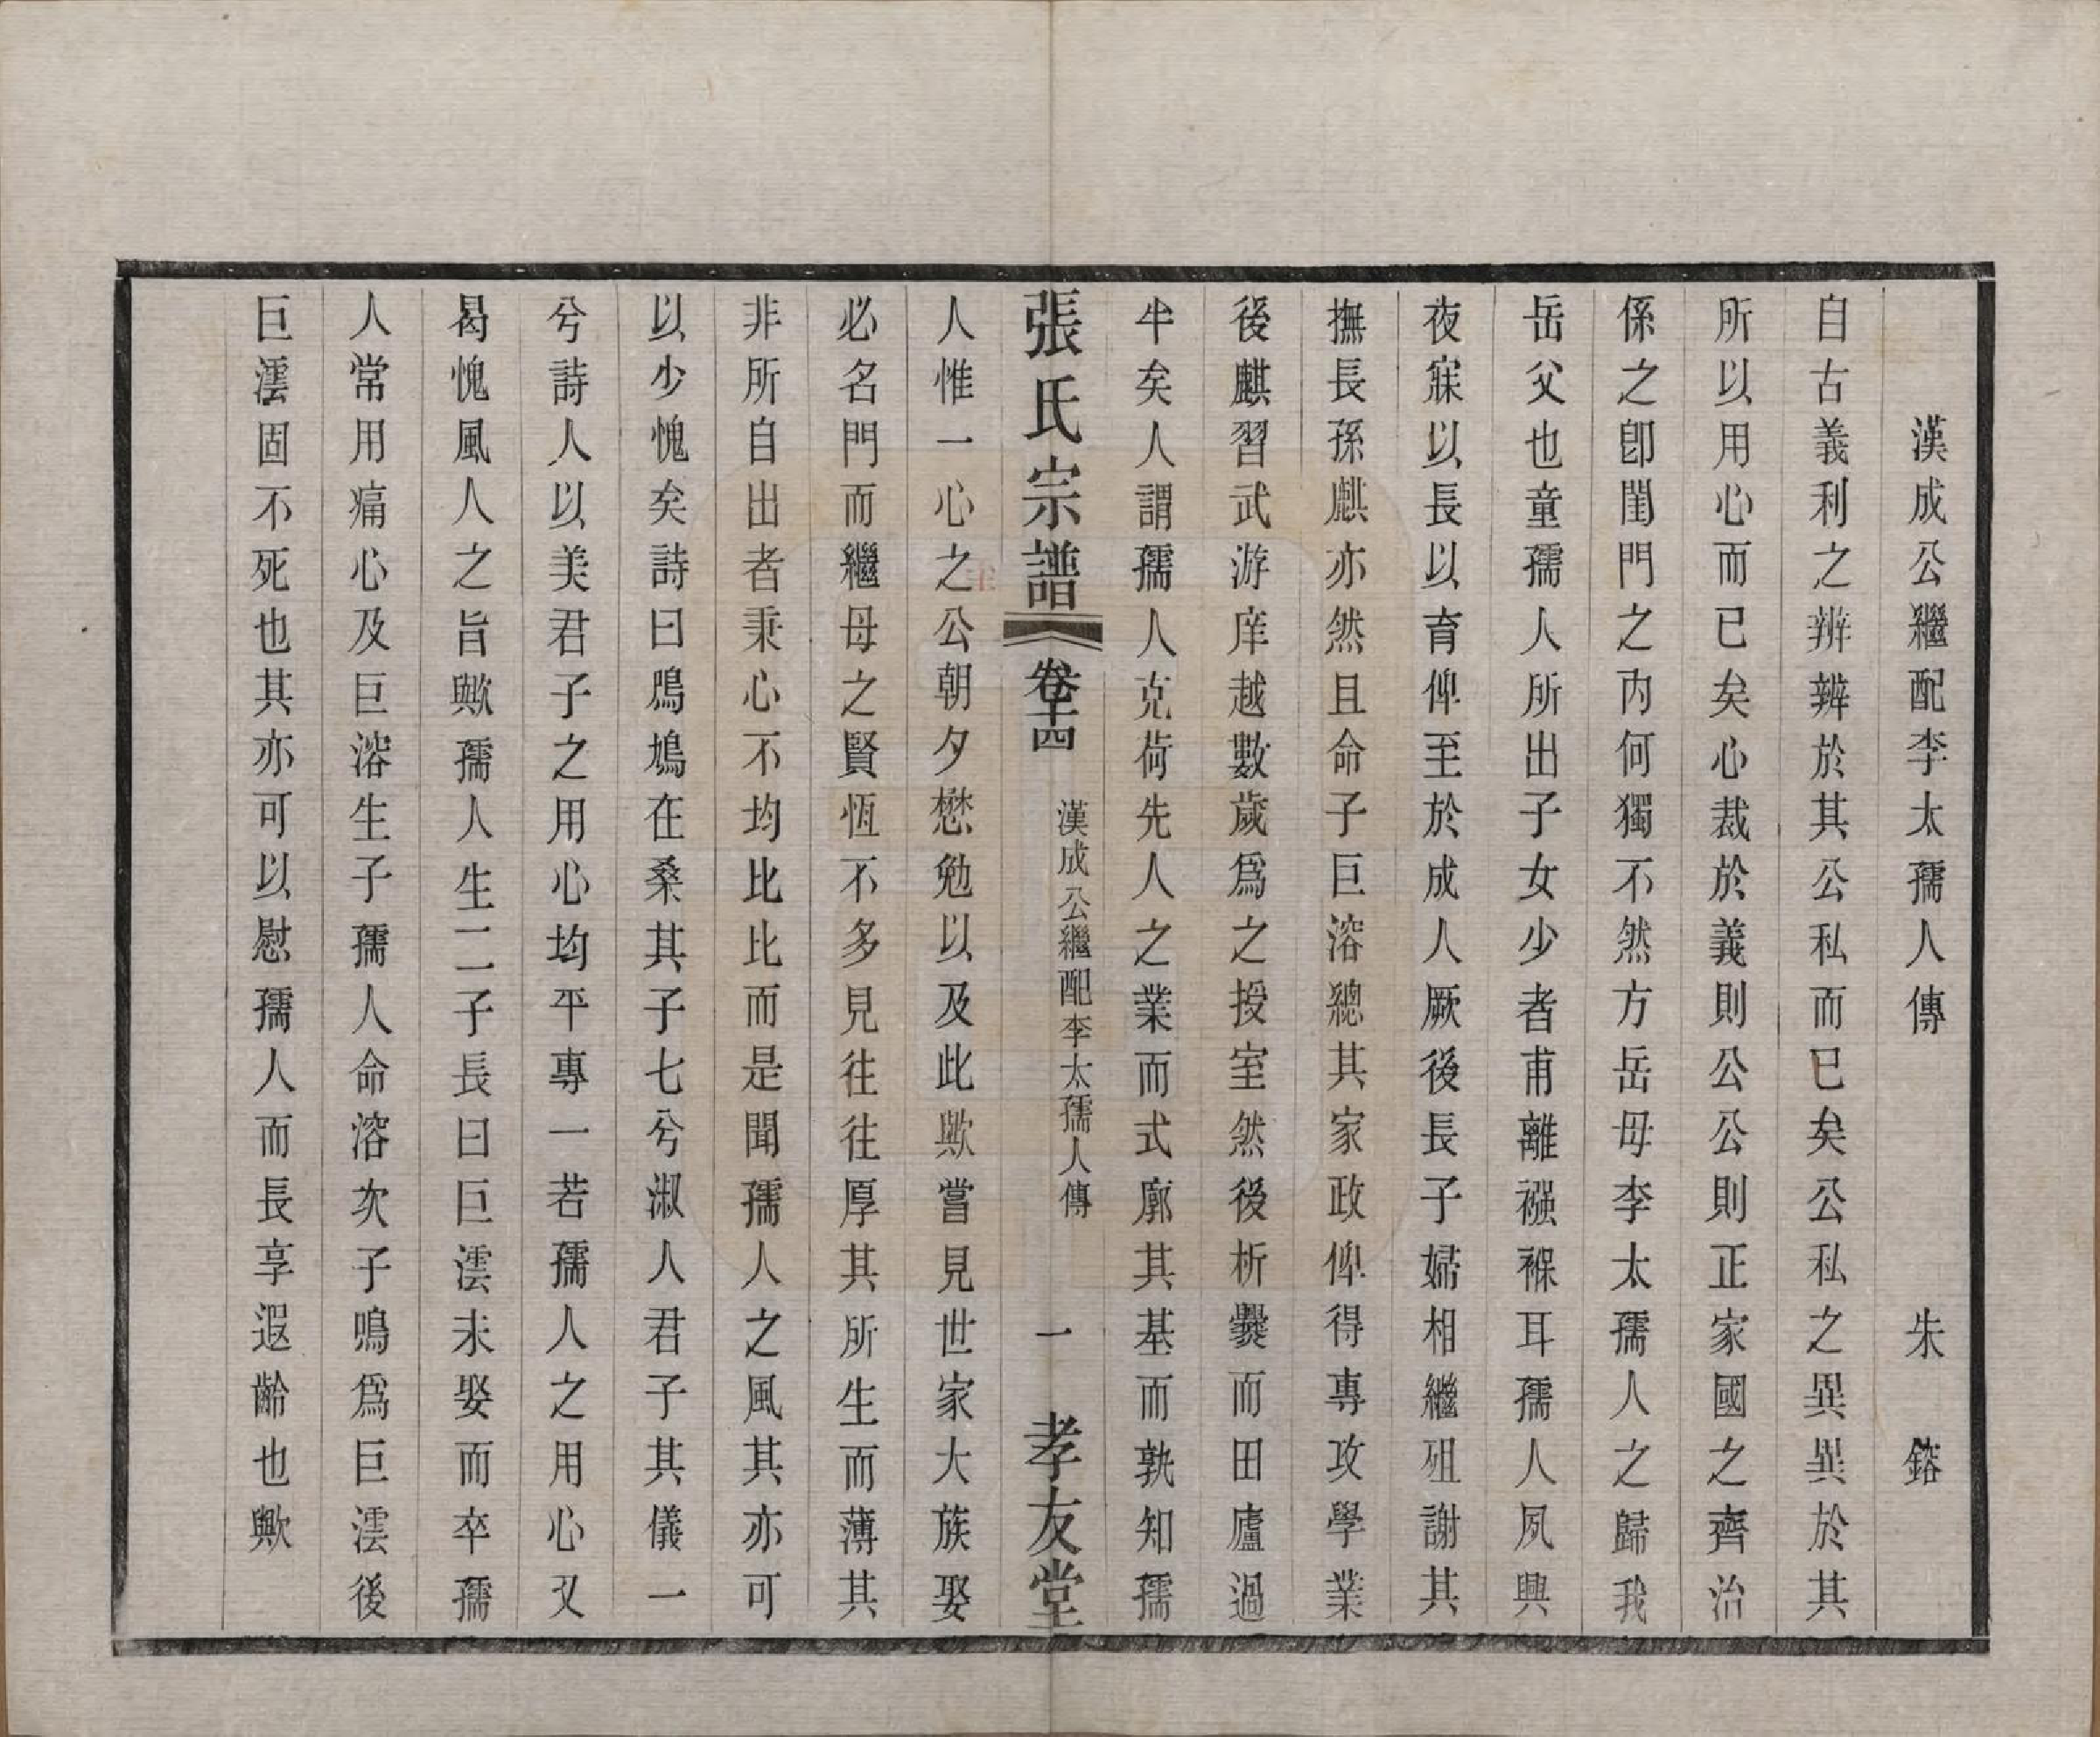 漢成公繼配李太孺人傳　朱鎔
自古義利之辨辨於其公私而已矣公私之異異於其
所以用心而已矣心裁於義則公公則正家國之齊治
係之卽閨門之內何獨不然方岳母李太孺人之歸我
岳父也童孺人所出子女少者甫離襁褓耳孺人夙興
夜寐以長以育俾至於成人厥後長子婦相繼殂謝其
撫長孫麒亦然且命子巨溶總其家政俾得專攻學業
後麒習武游庠越數歲爲之授室然後析爨而田廬過
半矣人謂孺人克荷先人之業而式廓其基而孰知孺
張氏宗譜　卷十四　漢成公繼配李太孺人傳　一　孝友堂
人惟一心之公朝夕懋勉以及此歟嘗見世家大族娶
必名門而繼母之賢恆不多見往往厚其所生而薄其
非所自出者秉心不均比比而是聞孺人之風其亦可
以少愧矣詩曰鳲鳩在桑其子七兮淑人君子其儀一
兮詩人以美君子之用心均平專一若孺人之用心又
曷愧風人之旨歟孺人生二子長曰巨澐未娶而卒孺
人常用痛心及巨溶生子孺人命溶次子鳴爲巨澐後
巨澐固不死也其亦可以慰孺人而長享遐齡也歟